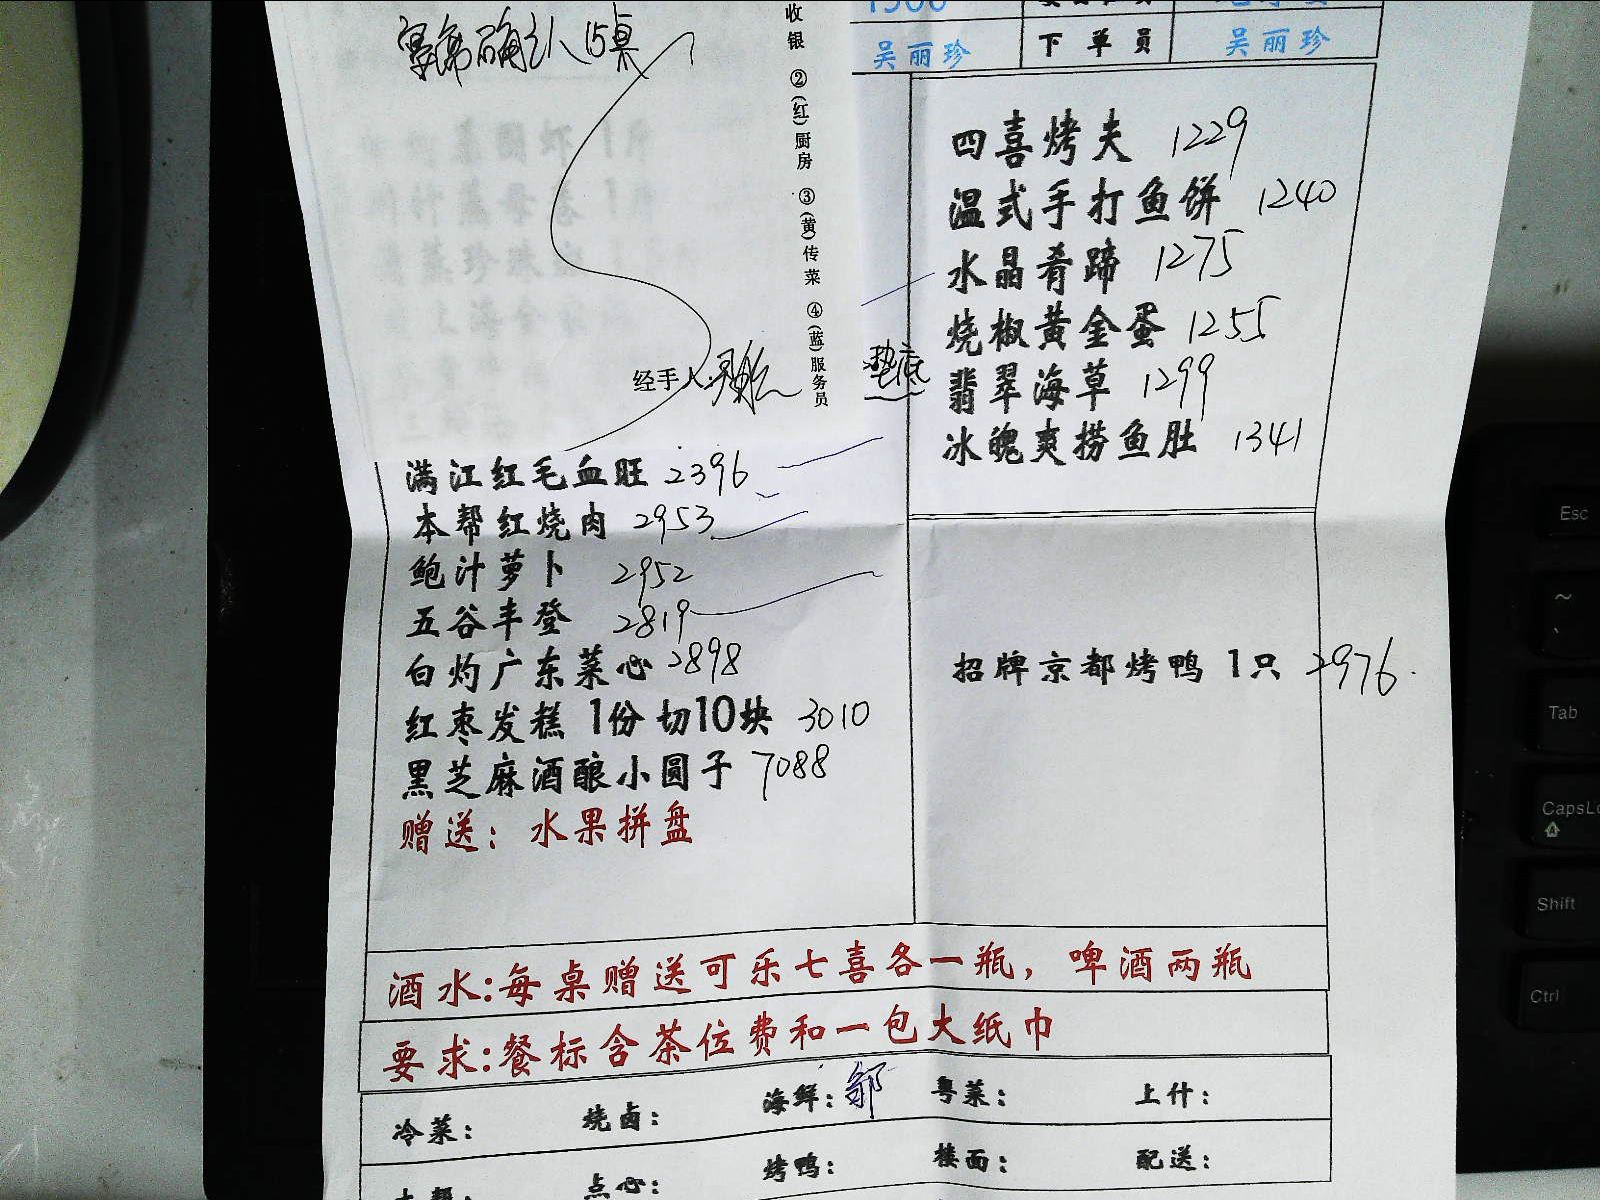 宴席确认15桌
收银 ②(红)厨房 ③(黄)传菜 ④(蓝)服务员
经手人:
吴丽珍 下单员 吴丽珍
四喜烤夫 1229
温式手打鱼饼 1240
水晶肴蹄 1275
烧椒黄金蛋 1255
垫底 翡翠海草 1299
冰魄爽捞鱼肚 1341
满江红毛血旺 2396
本帮红烧肉 2953
鲍汁萝卜 2952
五谷丰登 2819
白灼广东菜心 2898
红枣发糕 1份 切10块 3010
黑芝麻酒酿小圆子 7088
赠送：水果拼盘
招牌京都烤鸭 1只 2976
酒水:每桌赠送可乐七喜各一瓶，啤酒两瓶
要求:餐标含茶位费和一包大纸巾
冷菜: 烧卤: 海鲜:邹 粤菜: 上什:
点心: 烤鸭: 楼面: 配送:
Esc
~
Tab
CapsLo
Shift
Ctrl